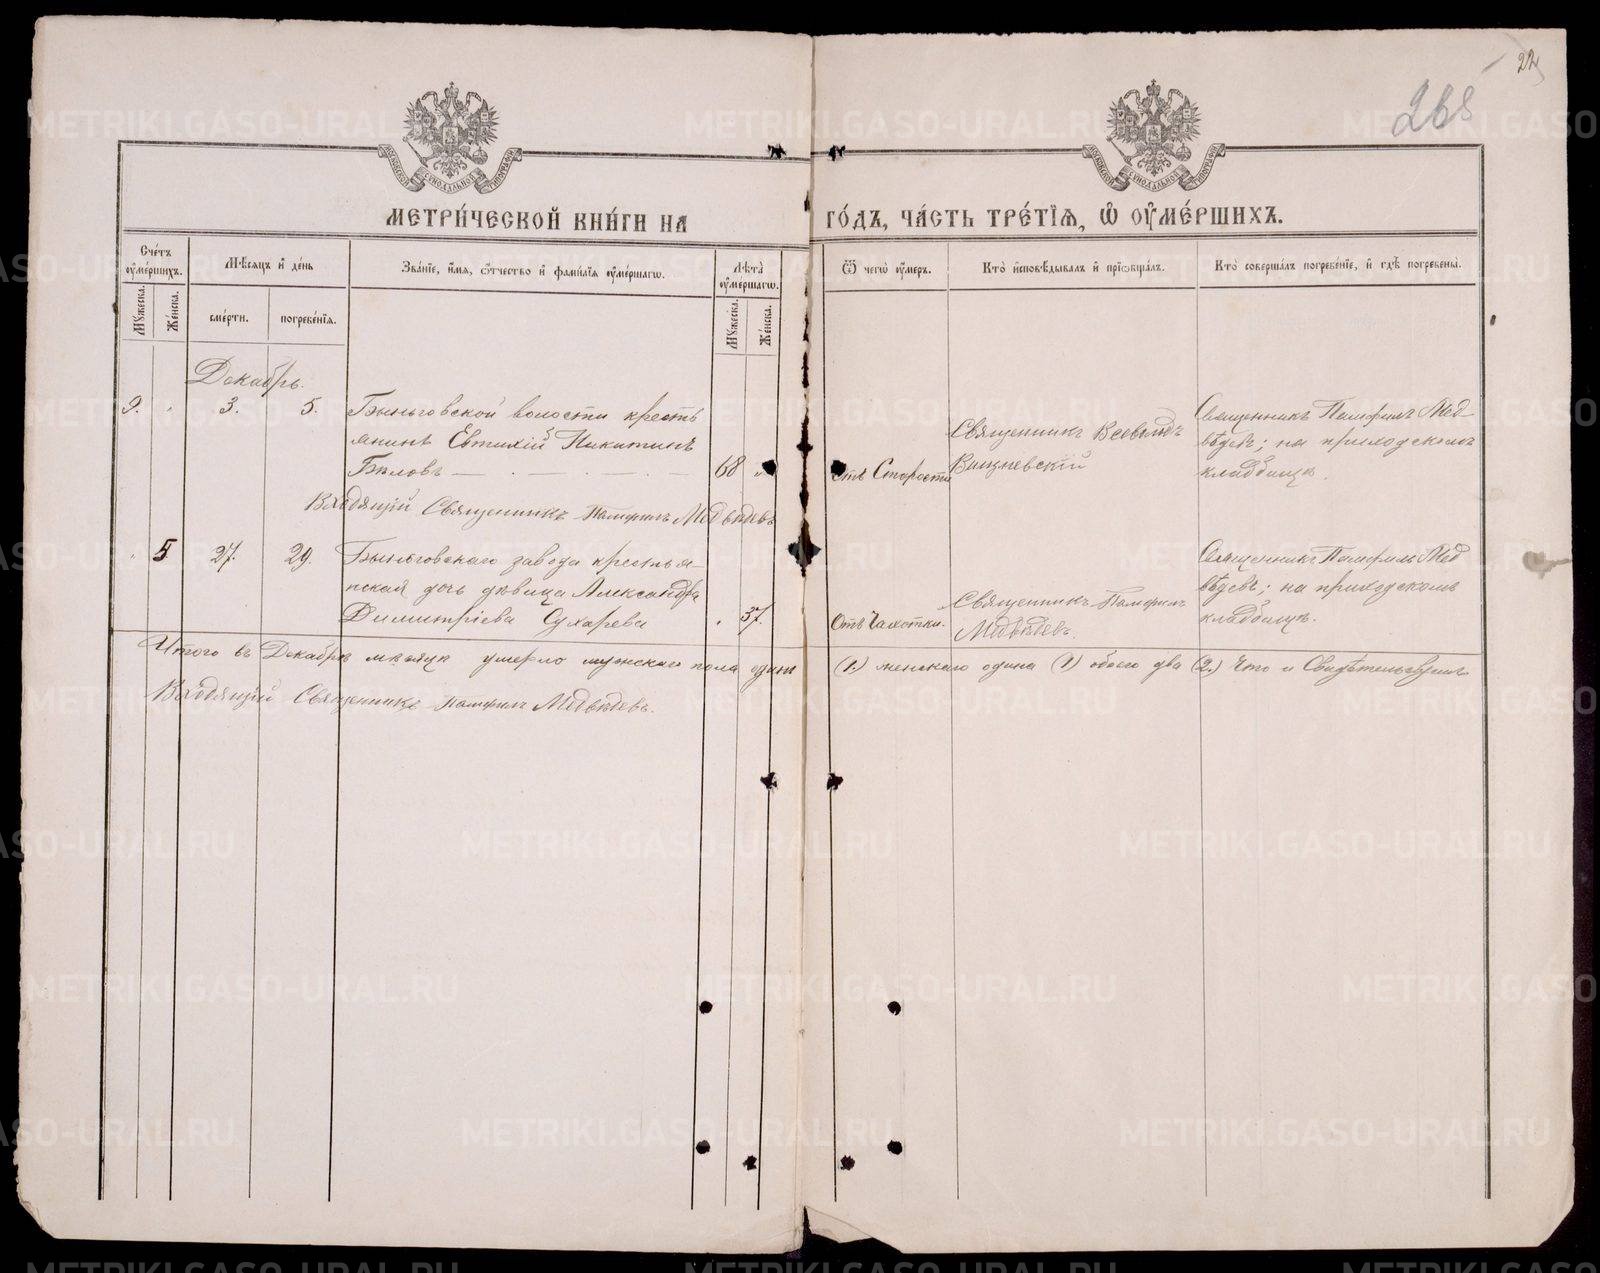 22
268
МОСКОВСКОЙ СѴНОДАЛЬНОЙ ТИПОГРАФІИ
МОСКОВСКОЙ СѴНОДАЛЬНОЙ ТИПОГРАФІИ
МЕТРИ́ЧЕСКОЙ КНИ́ГИ НА ГО́ДЪ, ЧА́СТЬ ТРЕ́ТІѦ, Ѡ҆ ОУ҆МЕ́РШИХЪ.
Сче́тъ оу҆ме́ршихъ.
Мꙋжеска.
Же́нска.
Мѣ́сѧцъ и҆ де́нь
сме́рти.
погребе́нїѧ.
Зва́нїе, и҆́мѧ, ѻ҆́тчество и҆ фамилїѧ оу҆ме́ршагѡ.
Лѣ́та оу҆ме́ршагѡ.
Мꙋжеска.
Же́нска.
Ѿ чегѡ̀ оу҆́меръ.
Кто̀ и҆сповѣ́дывалъ и҆ прїѡбща́лъ.
Кто̀ соверша́лъ погребе́нїе, и҆ гдѣ̀ погребены̀.
Декабрь.
9. 3. 5. Быньговской волости кресть
янинъ Евтихій Никитинъ
Бѣловъ — 68
отъ Старости
Священникъ Всеволодъ
Вишневскій
Священникъ Памфилъ Мед-
вѣдевъ; на приходскомъ
кладбищѣ.
Входящій Священникъ Памфилъ Медвѣдевъ
5 27. 29. Быньговскаго завода крестья-
нская дочь дѣвица Александра
Димитріева Сухарева 37.
Отъ Чахотки.
Священникъ Памфилъ
Медвѣдевъ.
Священникъ Памфилъ Мед
вѣдевъ; на приходскомъ
кладбищѣ.
Итого въ Декабрѣ мѣсяцѣ умерло мужскаго пола одинъ (1.) женскаго одина (1) обоего два (2.) Что и Свидѣтельствуемъ
Входящій Священникъ Памфилъ Медвѣдевъ.
METRIKI.GASO-URAL.RU